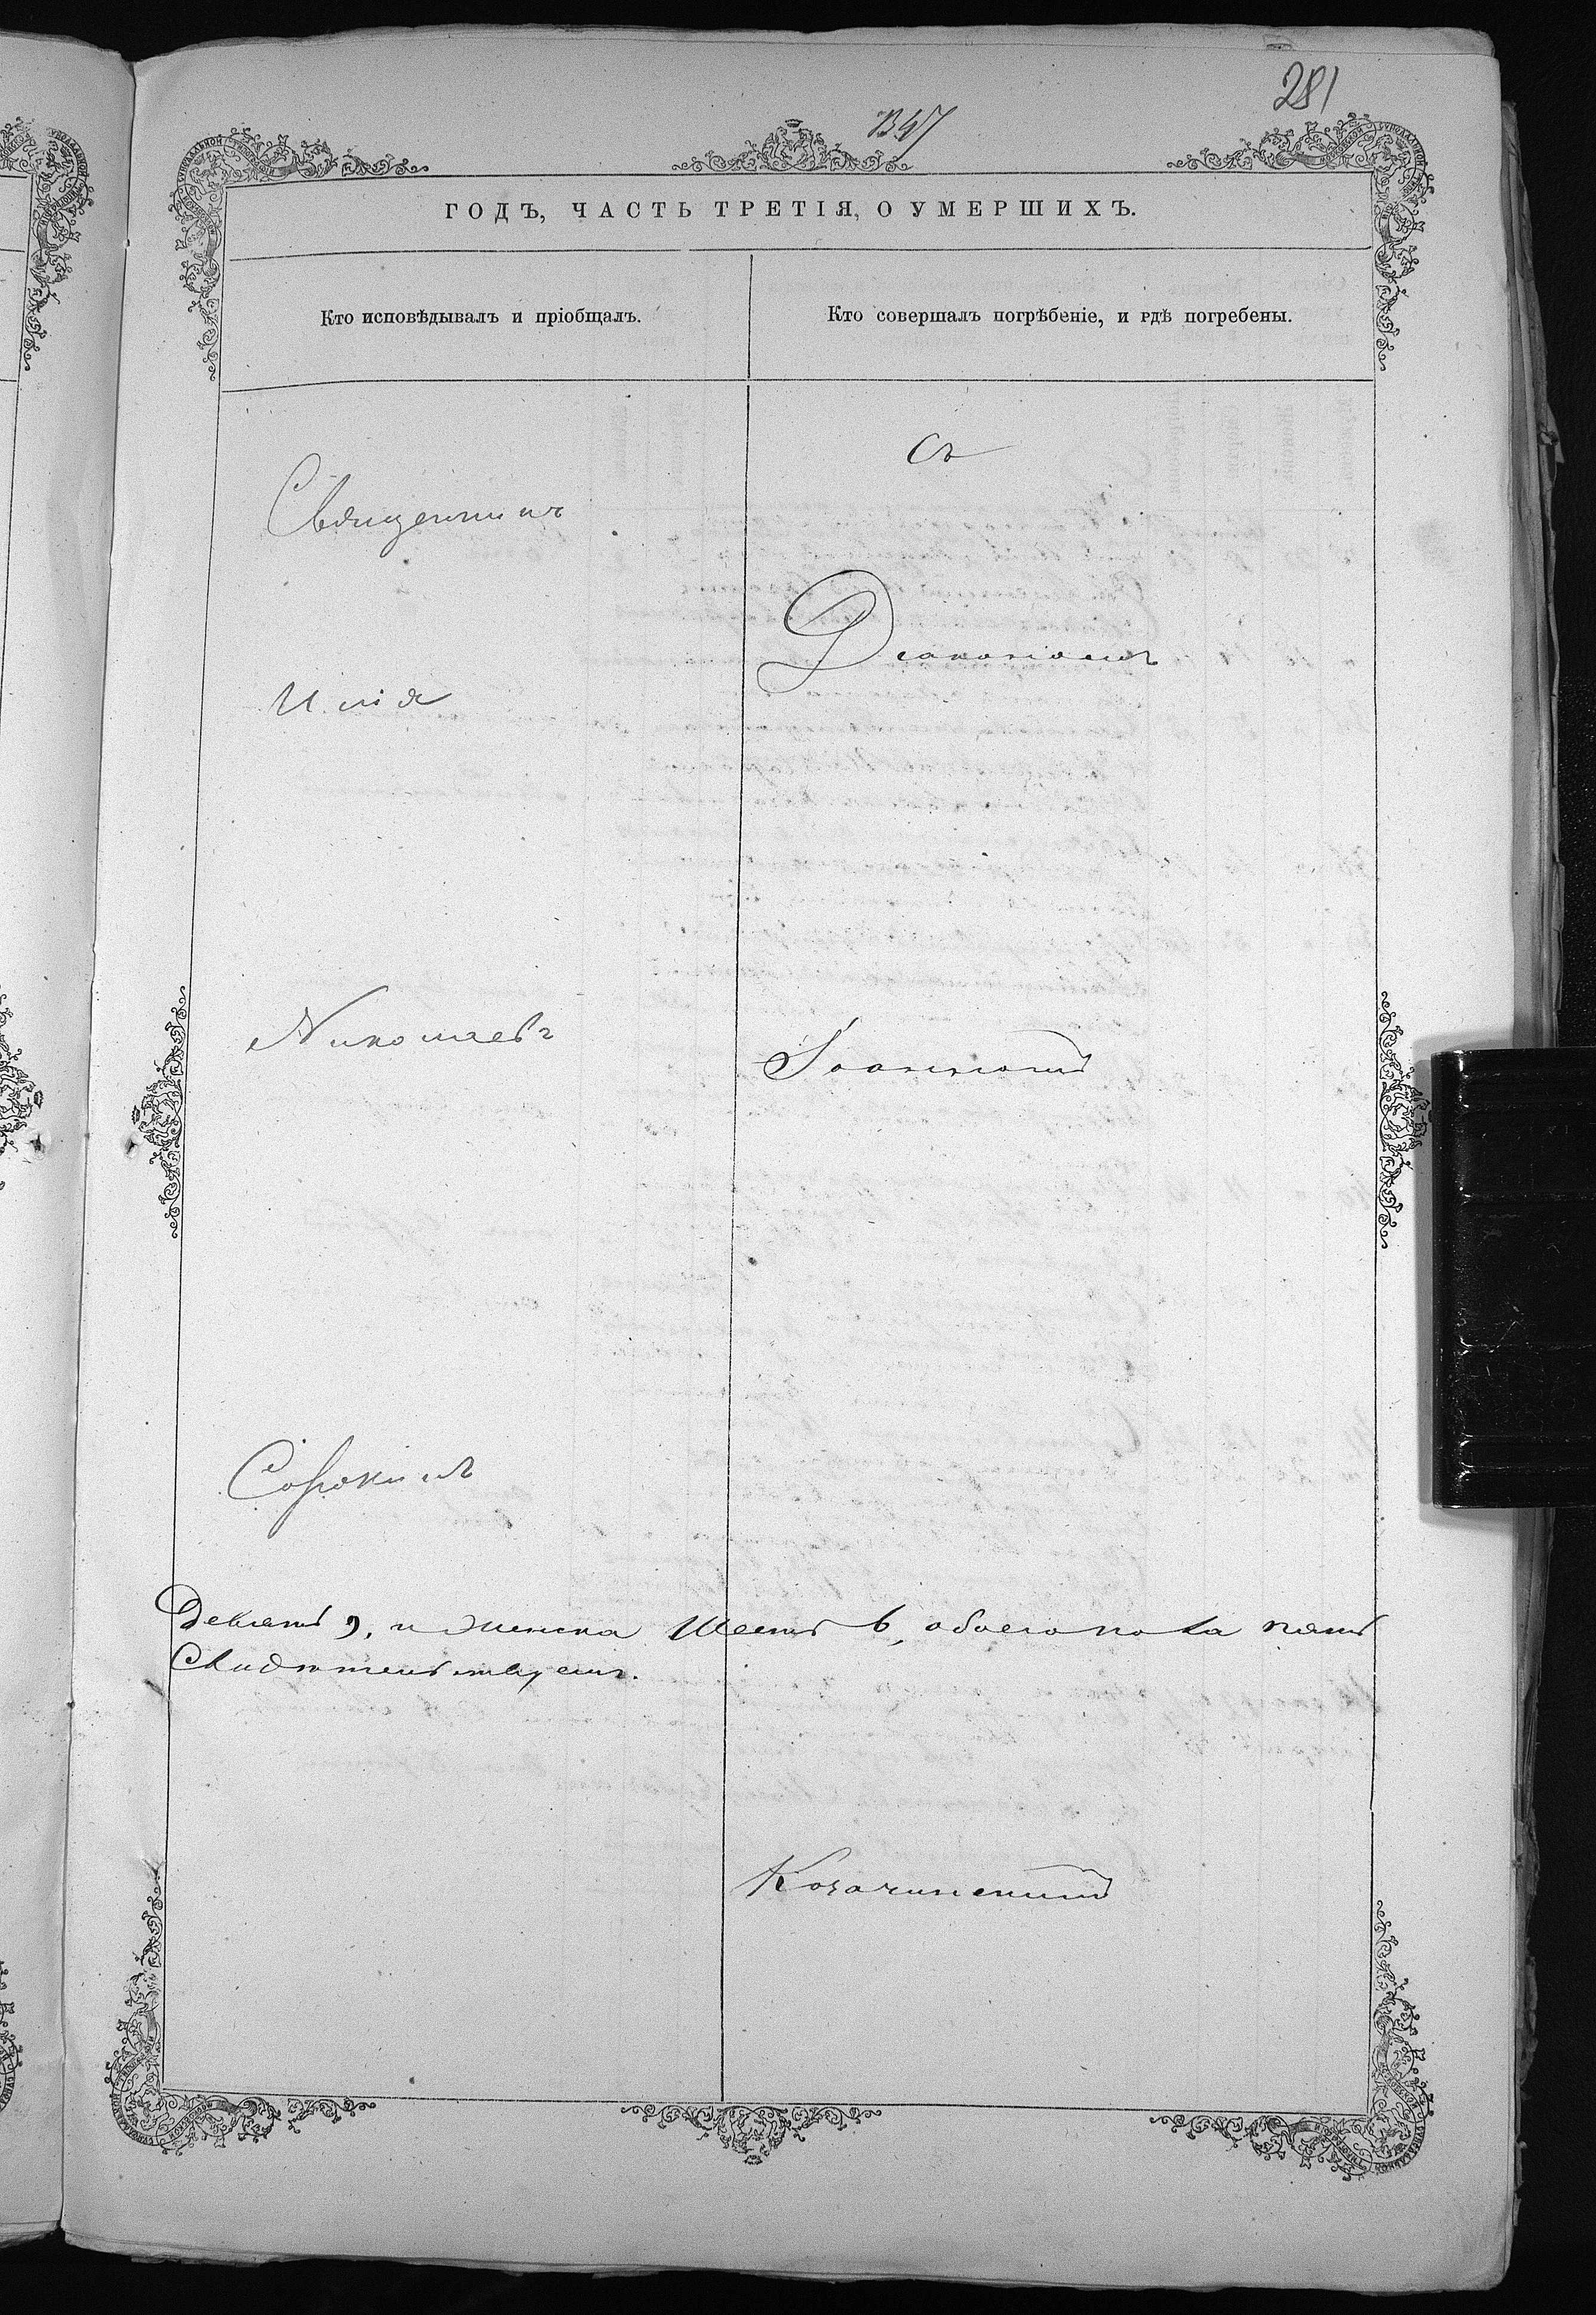 281
ГОДЪ, ЧАСТЬ ТРЕТІЯ, О УМЕРШИХЪ.
Кто исповѣдывалъ и пріобщалъ.
Кто совершалъ погрѣбеніе, и гдѣ погребены.
Священникъ
Илія
Николаевъ
Сорокинъ
съ
Діакономъ
Іоанномъ
Козачинскимъ
Девять 9, и женска шесть 6, обоего пола пять
Свидѣтельствуемъ.